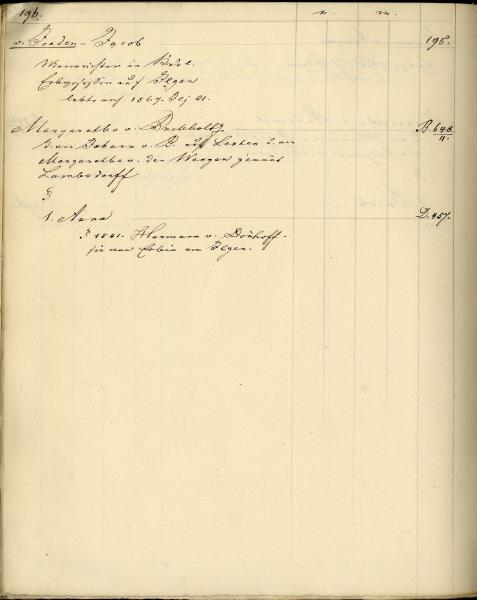 196. n. m.
v. Foeden - Jacob 195.
Mannrichter in Kurl.
Erbgesessen auf Ilgen
lebte noch 1567. Dez 21.
Margaretha v. Buchholtz B. 648/11.
T. von Johann v. B. auf Lesten u. von
Margaretha v. den Wengen genannt
Lambsdorff
§
1. Anna D. 457.
Hermann v. Dönhoff.
sie war Erbin von Ilgen.